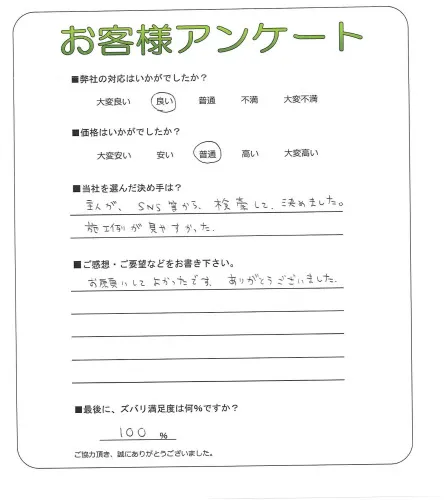 お客様アンケート
■弊社の対応はいかがでしたか？
大変良い 良い 普通 不満 大変不満
■価格はいかがでしたか？
大変安い 安い 普通 高い 大変高い
■当社を選んだ決め手は？
まんが、SNS等から、検索して、決めました。
施工例が見やすかった。
■ご感想・ご要望などをお書き下さい。
お願いしてよかったです。ありがとうございました。
■最後に、ズバリ満足度は何％ですか？
100 %
ご協力頂き、誠にありがとうございました。